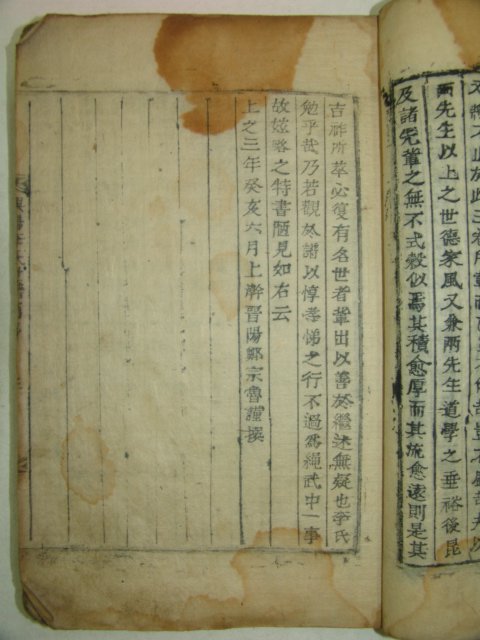 兩先生以上之世德家風又兼兩先生道學之垂裕後昆
及諸先輩之無不式穀似焉其積愈厚而其流愈遠則是其
吉祚所萃必復有名世者輩出以善於繼述無疑也李氏
勉乎哉乃若觀於譜以惇孝悌之行不過爲繩武中一事
故玆略之特書陋見如右云
上之三年癸亥六月上澣晋陽鄭宗魯謹撰